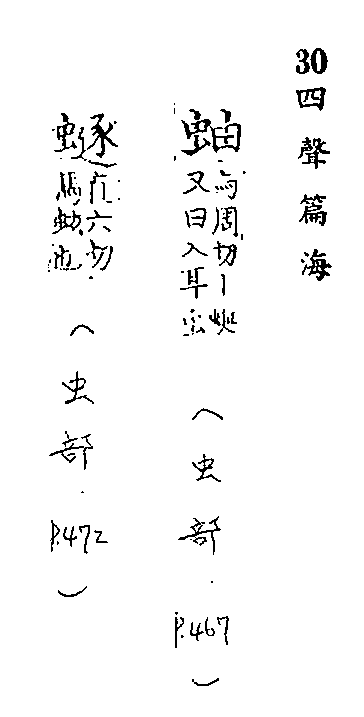 30四聲篇海
蚰与周切丨蜒
又曰入耳虫
(虫部.P.467)
蟗直六切
馬蚿也
(虫部.P.472)